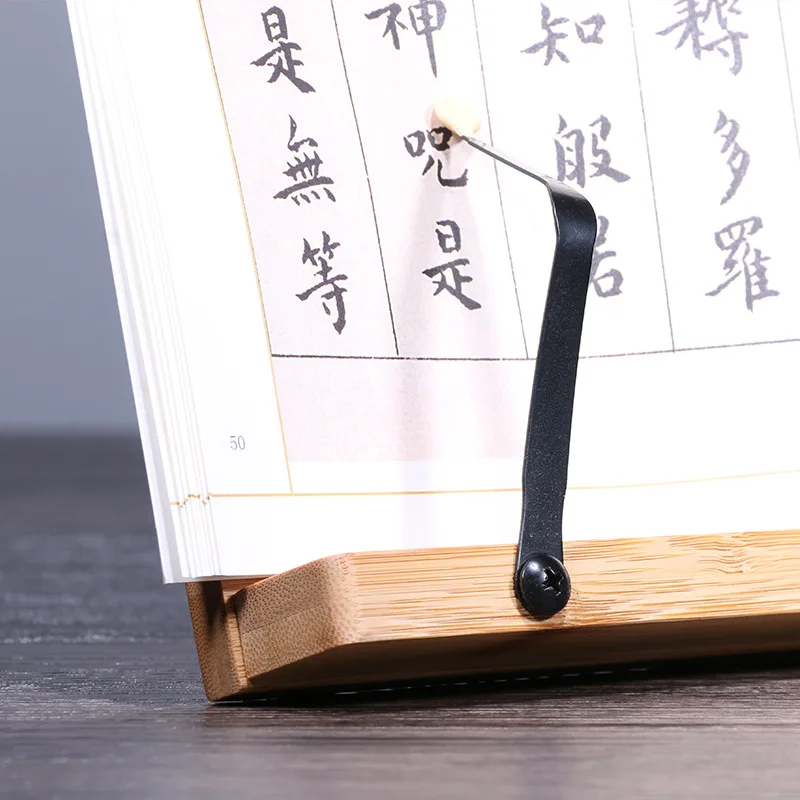 耨多羅
知般若
神呪是
是無等
50